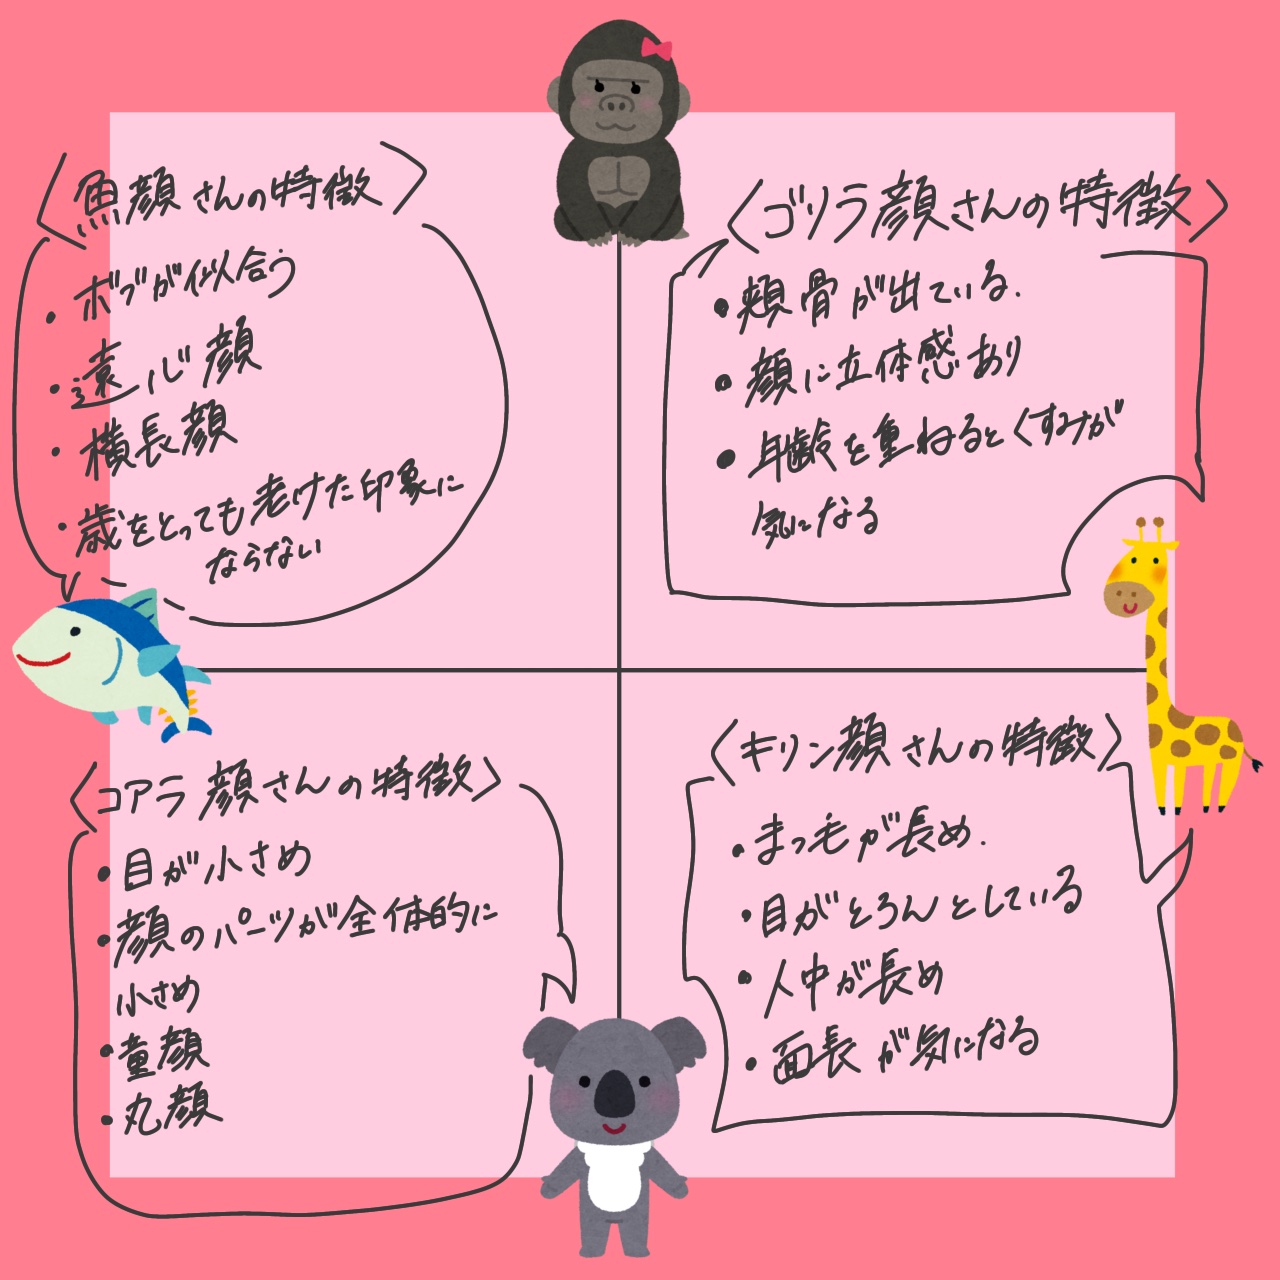 〈魚顔さんの特徴〉
・ボブが似合う
・遠心顔
・横長顔
・歳をとっても老けた印象に
ならない
〈ゴリラ顔さんの特徴〉
・頬骨が出ている.
・顔に立体感あり
・年齢を重ねるとくすみが
気になる
〈コアラ顔さんの特徴〉
・目が小さめ
・顔のパーツが全体的に
小さめ
・童顔
・丸顔
〈キリン顔さんの特徴〉
・まつ毛が長め.
・目がとろんとしている
・人中が長め
・面長が気になる